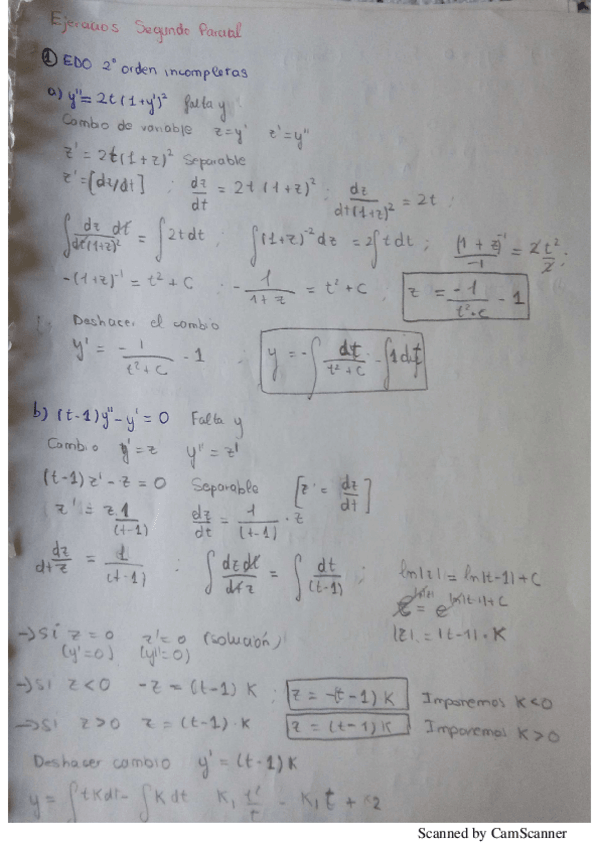 Ejercicios Segundo Parcial
① EDO 2º orden incompletas
a) y'' = 2t(1+y')² falta y
Cambio de variable z=y' z'=y''
z' = 2t(1+z)² Separable
z' = [dz/dt] ; dz/dt = 2t(1+z)² ; dz/dt(1+z)² = 2t ;
∫ dz dt/dt(1+z)² = ∫2tdt ; ∫(1+z)⁻²dz = 2∫tdt ; (1+z)⁻¹/-1 = 2t²/2 ;
-(1+z)⁻¹ = t²+C ; -1/1+z = t²+C ; z = -1/t²+C - 1
Deshacer el cambio
y' = -1/t²+C - 1 y = -∫ dt/t²+C - ∫1dt
b) (t-1)y''-y' = 0 Falta y
Cambio y'=z y''=z'
(t-1)z'-z = 0 Separable [z' = dz/dt]
z' = z 1/(t-1) dz/dt = 1/(t-1) · z
dz/dt z = 1/(t-1) ; ∫ dz dt/dt z = ∫ dt/(t-1) ; ln|z| = ln|t-1|+C
e^ln|z| = e^ln|t-1|+C
→ Si z=0 z'=0 (solución) |z| = |t-1|·K
(y'=0) (y''=0)
→ Si z<0 -z = (t-1)K ; z = -(t-1)K Imponemos K<0
→ Si z>0 z = (t-1)·K z = (t-1)K Imponemos K>0
Deshacer cambio y' = (t-1)K
y = ∫tKdt - ∫Kdt K₁ - K₁t + K2
Scanned by CamScanner